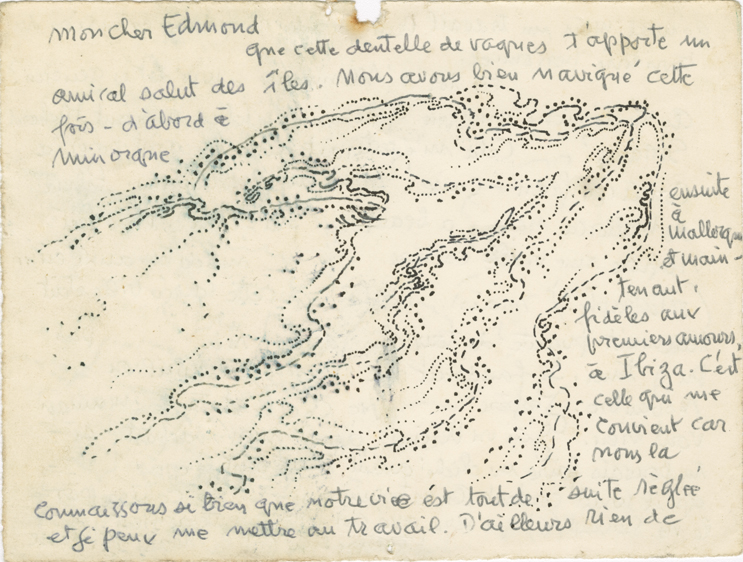 mon cher Edmond
que cette dentelle de vagues t'apporte un
amical salut des îles. Nous avons bien navigué cette
fois - d'abord à
Minorque
ensuite
à
Mallorque
et main-
tenant,
fidèles aux
premiers amours,
à Ibiza. C'est
celle qui me
convient car
nous la
connaissons si bien que notre vie est tout de suite réglée
et je peux me mettre au travail. D'ailleurs rien de